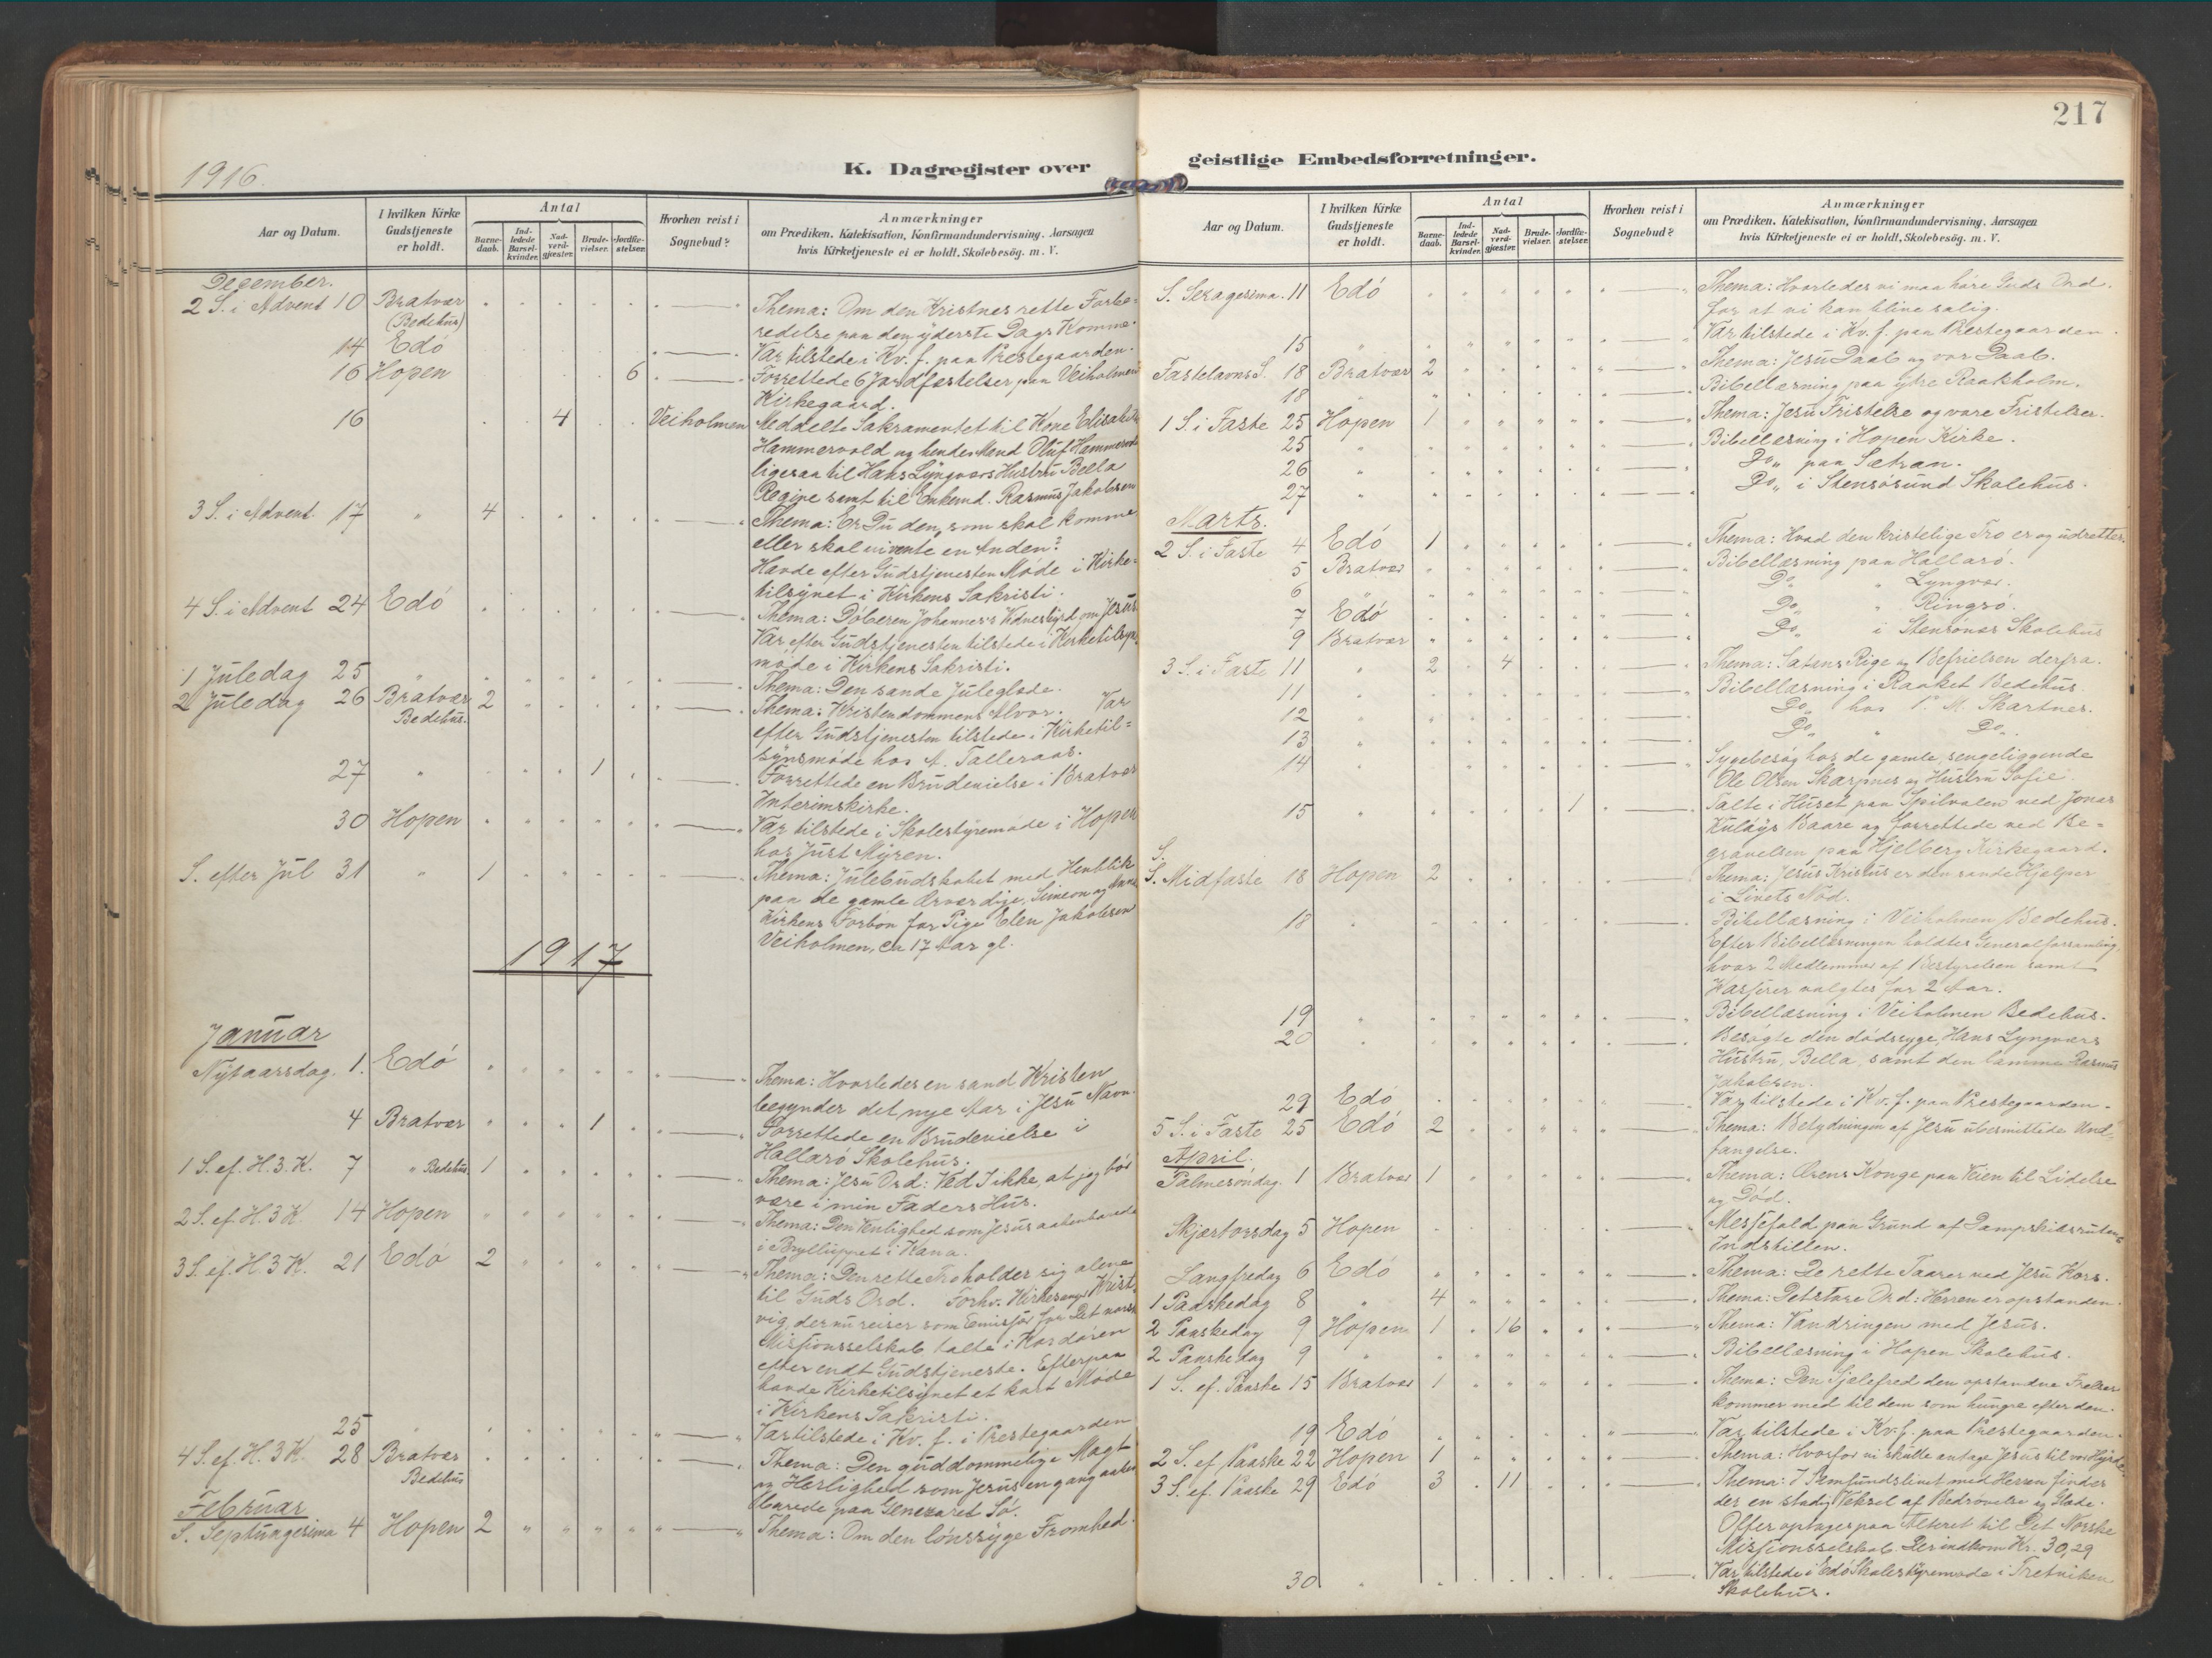 217
1916.
K. Dagregister over geistlige Embedsforretninger.
Aar og Datum. I hvilken Kirke Gudstjeneste er holdt. Antal Barne-daab. Ind-ledede Barsel-kvinder. Nad-verd-gjæster. Brude-vielser. Jordfæ-stelser. Hvorhen reist i Sognebud? Anmærkninger om Prædiken, Katekisation, Konfirmandundervisning, Aarsagen hvis Kirketjeneste ei er holdt, Skolebesög, m. V.
December.
2 S. i Advent 10 Bratvær (Bedehus) Thema: Om den Kristnes rette Forbe-
redelse paa den yderste Dags Komme.
14 Edö Var tilstede i Kv. f. paa Prestegaarden.
16 Hopen 6 Forrettede 6 Jordfæstelser paa Veiholmen
Kirkegaard.
16 4 Veiholmen Meddelte Sakramentet til Kone Elisabeth
Hammervold og hendes Mand Oluf Hammervold
ligesaa til Hans Lyngværs Hustru Bella
Regine samt til Enkemd. Rasmus Jakobsen
3 S. i Advent. 17 " 4 Thema: Er Du den, som skal komme
eller skal vi vente en Anden?
Havde efter Gudstjenesten Möde i Kirke-
tilsynet i Kirkens Sakristi.
4 S. i Advent 24 Edö Thema: Döberen Johannes's Vidnesbyrd om Jesus.
Var efter Gudstjenesten tilstede i Kirketilsyns
möde i Kirkens Sakristi.
1 Juledag 25 " Thema: Den sande Juleglæde.
2 Juledag 26 Bratvær Bedehus. 2 Thema: Kristendommens Alvor. Var
efter Gudstjenesten tilstede i Kirketil-
synsmöde hos A. Talleraas.
27 " 1 Forrettede en Brudevielse i Bratvær
Interimskirke.
30 Hopen Var tilstede i Skolestyremöde i Hopen
hos Just Myren.
S. efter Jul 31 " 1 Thema: Julebudskabet med Henblik
paa de gamle ærværdige, Simeon og Anna
Kirkens Forbön for Pige Elen Jakobsen
Veiholmen, ca 17 Aar gl.
1917
Januar
Nytaarsdag. 1. Edö Thema: Hvorledes en sand Kristen
begynder det nye Aar i Jesu Navn.
4 Bratvær 1 Forrettede en Brudevielse i
Hallarö Skolehus.
1 S. ef. H. 3. K. 7 " Bedehus. 1 Thema: Jesu Ord: Ved I ikke, at jeg bör
være i min Faders Hus.
2 S. ef. H. 3 K. 14 Hopen Thema: Den Venlighed som Jesus aabenbarede
i Brylluppet i Kana.
3 S. ef. H. 3 K. 21 Edö 2 Thema: Den rette Tro holder sig alene
til Guds Ord. Forhv. Kirkesanger Krist-
vig, der nu reiser som Emissær for Det norske
Misjonsselskab talte i Kordören
efter endt Gudstjeneste. Efterpaa
havde Kirketilsynet et kort Möde
i Kirkens Sakristi.
25 " Var tilstede i Kv. f. i Prestegaarden
4 S. ef. H. 3 K. 28 Bratvær Bedehus Thema: Den guddommelige Magt
og Herlighed som Jesus engang aaben-
barede paa Genezaret Sö.
Februar
S. Septuagesima 4 Hopen 2 Thema: Om den lönssyge Fromhed.
Aar og Datum. I hvilken Kirke Gudstjeneste er holdt. Antal Barne-daab. Ind-ledede Barsel-kvinder. Nad-verd-gjæster. Brude-vielser. Jordfæ-stelser. Hvorhen reist i Sognebud? Anmærkninger om Prædiken, Katekisation, Konfirmandundervisning, Aarsagen hvis Kirketjeneste ei er holdt, Skolebesög, m. V.
S. Sexagesima. 11 Edö Thema: Hvorledes vi maa höre Guds Ord,
for at vi kan blive salig.
15 " Var tilstede i Kv. f. paa Prestegaarden.
Fastelavns S. 18 Bratvær 2 Thema: Jesu Daab og vor Daab.
18 " Bibellæsning paa ytre Raakholm.
1 S. i Faste 25 Hopen 1 Thema: Jesu Fristelse og vore Fristelser.
25 " Bibellæsning i Hopen Kirke.
26 " Do. paa Sætran.
27 " Do. i Stensösund Skolehus.
Marts.
2 S. i Faste 4 Edö 1 Thema: Hvad den kristelige Tro er og udretter.
5 Bratvær Bibellæsning paa Hallarö.
6 " Do. " Lyngvær.
7 Edö Do. " Ringsö.
9 Bratvær Do. i Stensönes Skolehus
3 S. i Faste 11 " 2 4 Thema: Satans Rige og Befrielsen derfra.
11 " Bibellæsning i Raaket Bedehus.
12 " Do. hos P. M. Skarpnes.
13 " Do. " Do.
14 " Sygebesög hos de gamle, sengeliggende
Ole Olsen Skarpnes og Hustru Sofie.
15 1 Talte i Huset paa Spilvalen ved Jonas
Kulöys Baare og forrettede ved Be-
gravelsen paa Hjelberg Kirkegaard.
S. Midfaste 18 Hopen 2 Thema: Jesus Kristus er den sande Hjælper
i Livets Nöd.
18 " Bibellæsning i Veiholmen Bedehus.
Efter Bibellæsningen holdtes Generalforsamling,
hvor 2 Medlemmer af Bestyrelsen samt
Kasserer valgtes for 2 Aar.
19 " Bibellæsning i Veiholmen Bedehus.
20 Besögte den dödssyge, Hans Lyngværs
Hustru, Bella, samt den lamme Rasmus
Jakobsen.
29 Edö Var tilstede i Kv. f. paa Prestegaarden.
5 S. i Faste 25 Edö 2 Thema: Betydningen af Jesu ubesmittede Und-
fangelse.
April.
Palmesöndag. 1 Bratvær 1 Thema: Ærens Konge paa Veien til Lidelse
og Död.
Skjærtorsdag 5 Hopen Messefald paa Grund af Dampskibsrutens
Indstillen.
Langfredag 6 Edö Thema: De rette Taarer ved Jesu Kors.
1 Paaskedag 8 " 4 Thema: Det store Ord: Herren er opstanden.
2 Paaskedag 9 Hopen 1 16 Thema: Vandringen med Jesus.
2 Paaskedag 9 " Bibellæsning i Hopen Skolehus.
1 S. ef. Paaske 15 Bratvær 1 Thema: Den Sjælefred den opstandne Frelser
kommer med til dem som hungre efter den.
19 Edö Var tilstede i Kv. f. paa Prestegaarden.
2 S. ef. Paaske 22 Hopen 1 Thema: Hvorfor vi skulle antage Jesus til vor Hyrde.
3 S. ef. Paaske 29 Edö 3 11 Thema: I Samfundslivet med Herren finder
der en stadig Veksel af Bedrövelse og Glæde.
Offer optoges paa Alteret til Det Norske
Misjonsselskab. Der indkom Kr. 30,29
30 " Var tilstede i Edö Skolestyremöde i Tretviken
Skolehus.